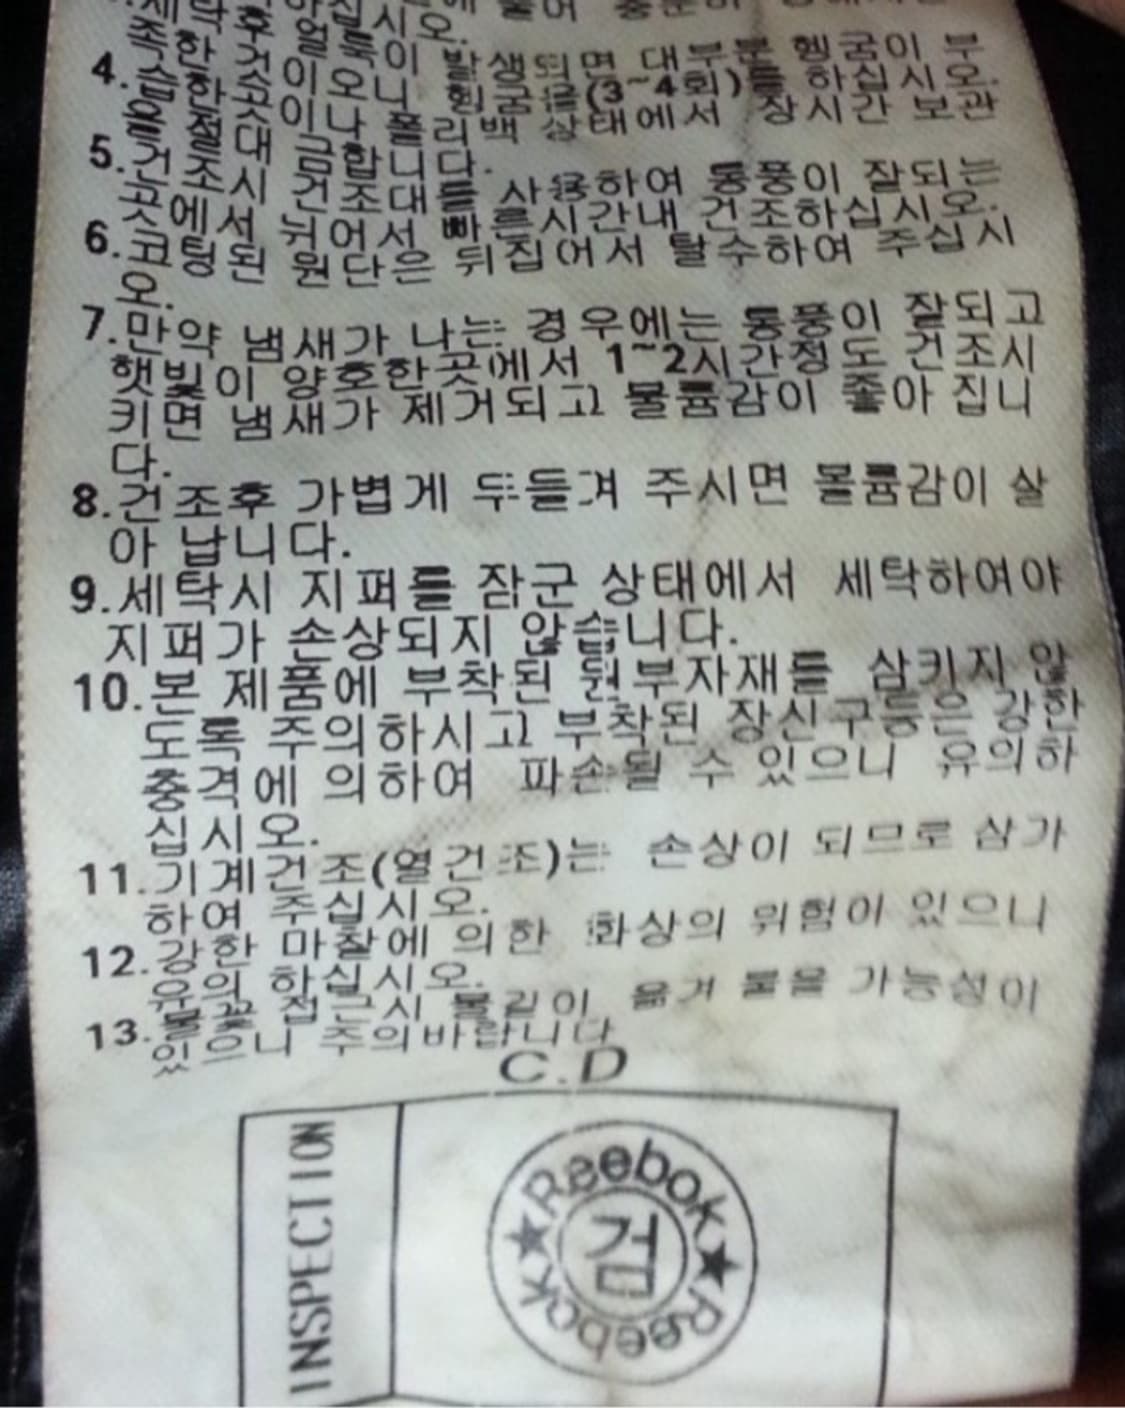 하십시오.
세탁후 얼룩이 발생되면 대부분 헹굼이 부
족한 것이오니 헹굼을(3~4회)를 하십시오.
4.습한곳이나 폴리백 상태에서 장시간 보관
을 절대 금합니다.
5.건조시 건조대를 사용하여 통풍이 잘되는
곳에서 뉘어서 빠른시간내 건조하십시오.
6.코팅된 원단은 뒤집어서 탈수하여 주십시
오.
7.만약 냄새가 나는 경우에는 통풍이 잘되고
햇빛이 양호한곳에서 1~2시간정도 건조시
키면 냄새가 제거되고 볼륨감이 좋아 집니
다.
8.건조후 가볍게 두들겨 주시면 볼륨감이 살
아 납니다.
9.세탁시 지퍼를 잠군 상태에서 세탁하여야
지퍼가 손상되지 않습니다.
10.본 제품에 부착된 원부자재를 삼키지 않
도록 주의하시고 부착된 장신구등은 강한
충격에 의하여 파손될 수 있으니 유의하
십시오.
11.기계건조(열건조)는 손상이 되므로 삼가
하여 주십시오.
12.강한 마찰에 의한 화상의 위험이 있으니
유의 하십시오.
13.불꽃 접근시 불길이 옮겨 붙을 가능성이
있으니 주의바랍니다
C.D
INSPECTION
Reebok
검
Reebok